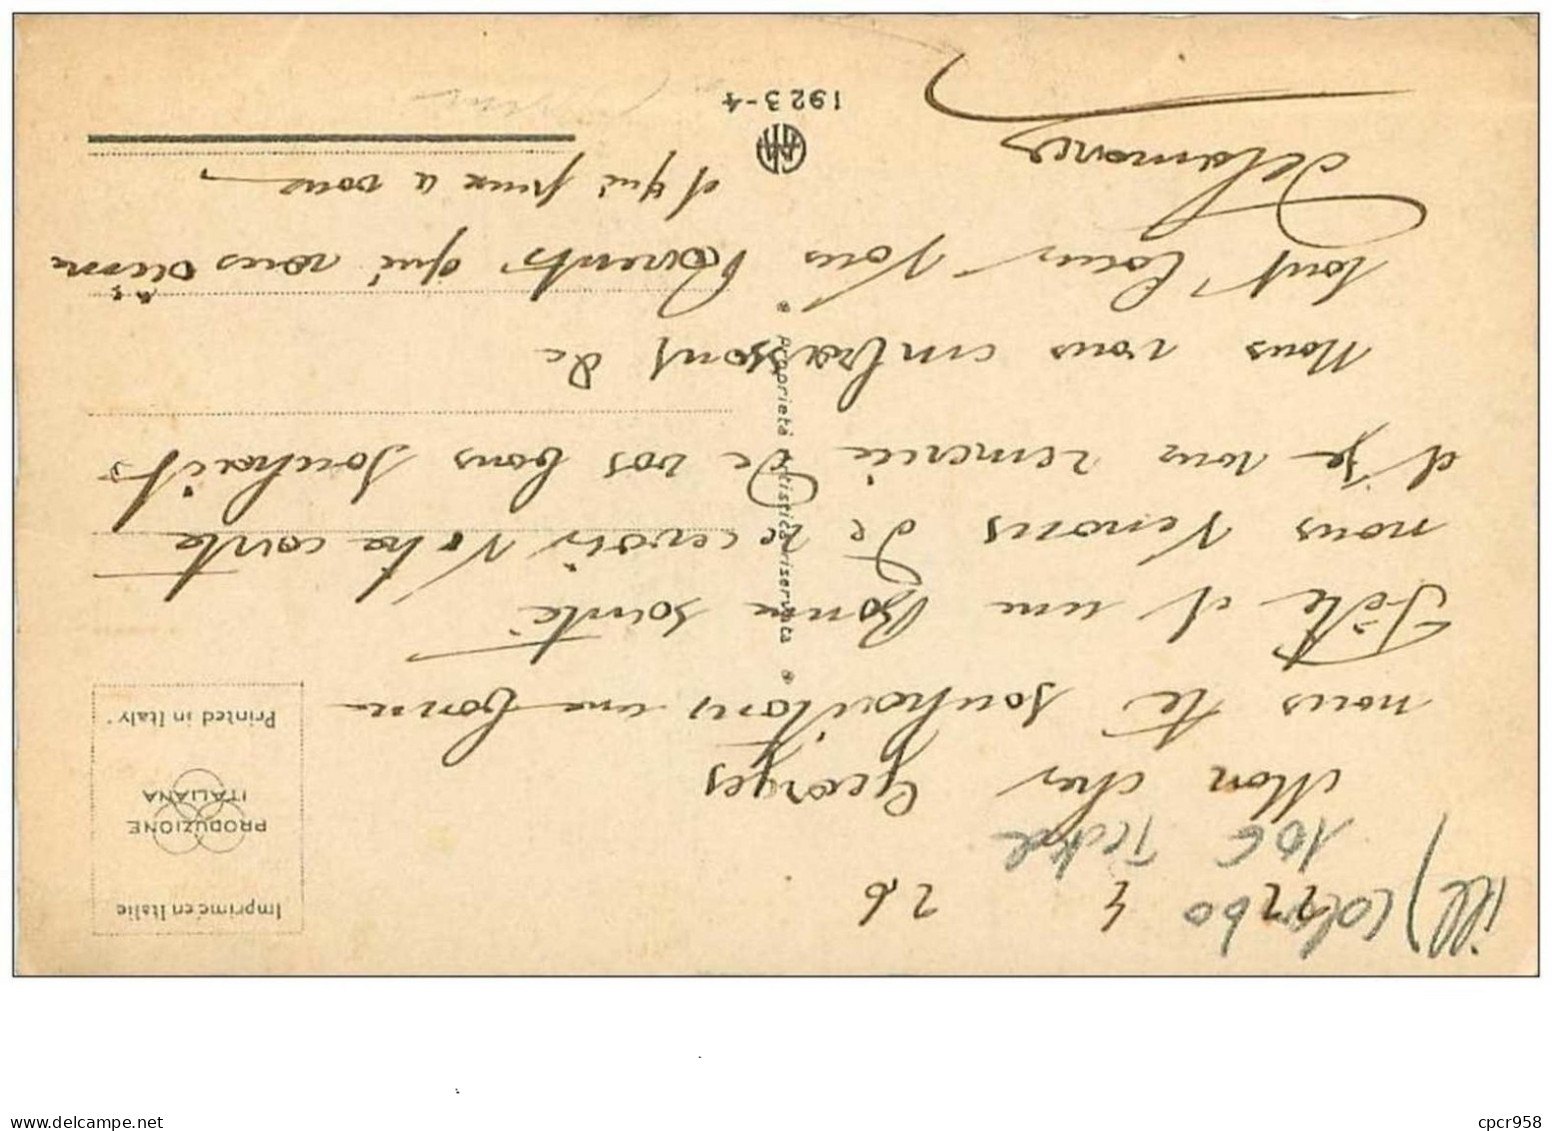 ill) Colombo
22 4 26
10€ Teckel
Mon cher Georges
nous te souhaitons une bonne
Fête et une Bonne santé
nous Venons de recevoir Votre carte
et je vous remercie de vos bons souhaits
Nous vous embrassons de
tout Coeur Vous Parents qui vous aime
et qui pense a vous
Delamarre
Imprimé en Italie
PRODUZIONE
ITALIANA
Printed in Italy
Proprietà artistica riservata
1923-4
delcampe.net
cpcr958